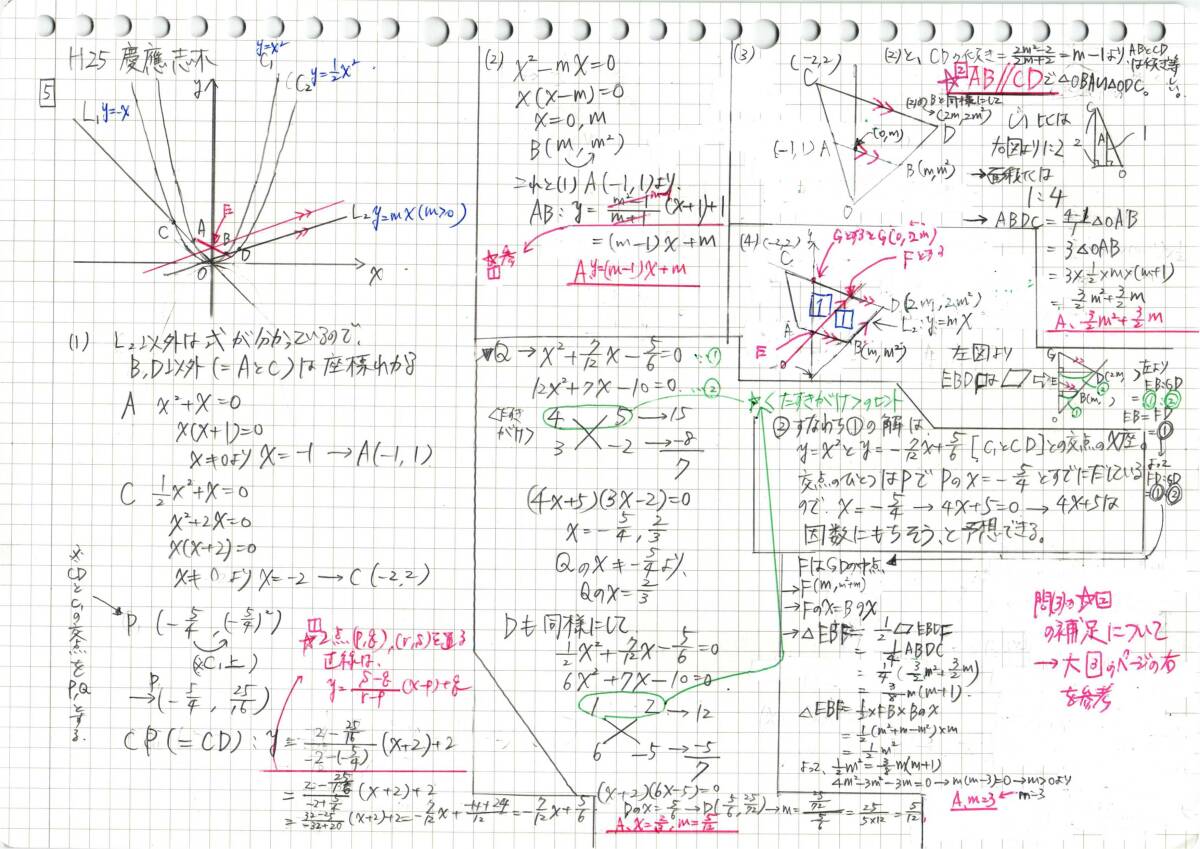 H25 慶應志木
5
y=x²
C₁
C₂ y=½x²
y
L₁ y=-x
L₂ y=mx(m>0)
C
A
E
B
D
O
x
(1) L₂以外は式が分かっているので、
B,D以外(=AとC)は座標わかる
A x²+x=0
x(x+1)=0
x≠0よりx=-1→A(-1,1)
C ½x²+x=0
x²+2x=0
x(x+2)=0
x≠0よりx=-2→C(-2,2)
※CDとC₁の交点をP,Qとする.
P(-5/4, (-5/4)²)
(※C₁上)
→P(-5/4, 25/16)
☆1 2点(p,q),(r,s)を通る
直線は、
y=(s-q)/(r-p)(x-p)+q
CP(=CD): y=(2-25/16)/(-2-(-5/4))(x+2)+2
=(2-25/16)/(-2+5/4)(x+2)+2
=(32-25)/(-32+20)(x+2)+2=-7/12x+(-14+24)/12=-7/12x+5/6
(2) x²-mx=0
x(x-m)=0
x=0, m
B(m, m²)
これと(1)A(-1,1)より、
AB: y=(m²-1)/(m+1)(x+1)+1
=(m-1)x+m
☆1参
A. y=(m-1)x+m
Q→x²+7/12x-5/6=0…①
12x²+7x-10=0…②
<たすきがけ>
4 5→15
3 -2→-8
7
(4x+5)(3x-2)=0
x=-5/4, 2/3
Qのx≠-5/4より、
Qのx=2/3
Dも同様にして
½x²+7/12x-5/6=0
6x²+7x-10=0
1 2→12
6 -5→-5
7
(x+2)(6x-5)=0
Dのx=5/6→D(5/6, 25/72)→m=(25/72)/(5/6)=25/(5×12)=5/12,
A. x=2/3, m=5/12
(3)
(-2,2)
C
(2)のBと同様にして
(2m,2m²)
D
(0,m)
(-1,1)A
B(m,m²)
O
(2)と、CDの傾き=(2m²-2)/(2m+2)=m-1より
ABとCDは傾き等しい。
☆2 AB//CDで△OBA∽△ODC。
右図より1:2
→面積比は
1:4
→ABDC=(4-1)△OAB
=3△OAB
=3×½×m×(m+1)
=3/2m²+3/2m
A. 3/2m²+3/2m
(4)
(-2,2)
C
GとするとG(0,2m)
Fとする
D(2m,2m²)
L₂:y=mx
B(m,m²)
A
E
1
1
左図より
EBDFは▱
左より
EB:GD
=①:②
EB=FD
=①
よって
FD:GD
=①:②
☆<たすきがけ>のヒント
②すなわち①の解は
y=x²とy=-7/12x+5/6[C₁とCD]との交点のx座。
交点のひとつはPでPのx=-5/4とすでにだしている
ので、x=-5/4→4x+5=0→4x+5は
因数にもちそう、と予想できる。
FはGDの中点
→F(m,m²+m)
→Fのx=Bのx
→△EBF=½▱EBDF
=¼ABDC
=¼(3/2m²+3/2m)
=3/8m(m+1).
△EBF=½×FB×Bのx
=½(m²+m-m²)×m
=½m²
よって、½m²=3/8m(m+1)
4m²-3m²-3m=0→m(m-3)=0→m>0より
m=3
A. m=3
問(3)の☆2
の補足について
→大3のページの右
を参考